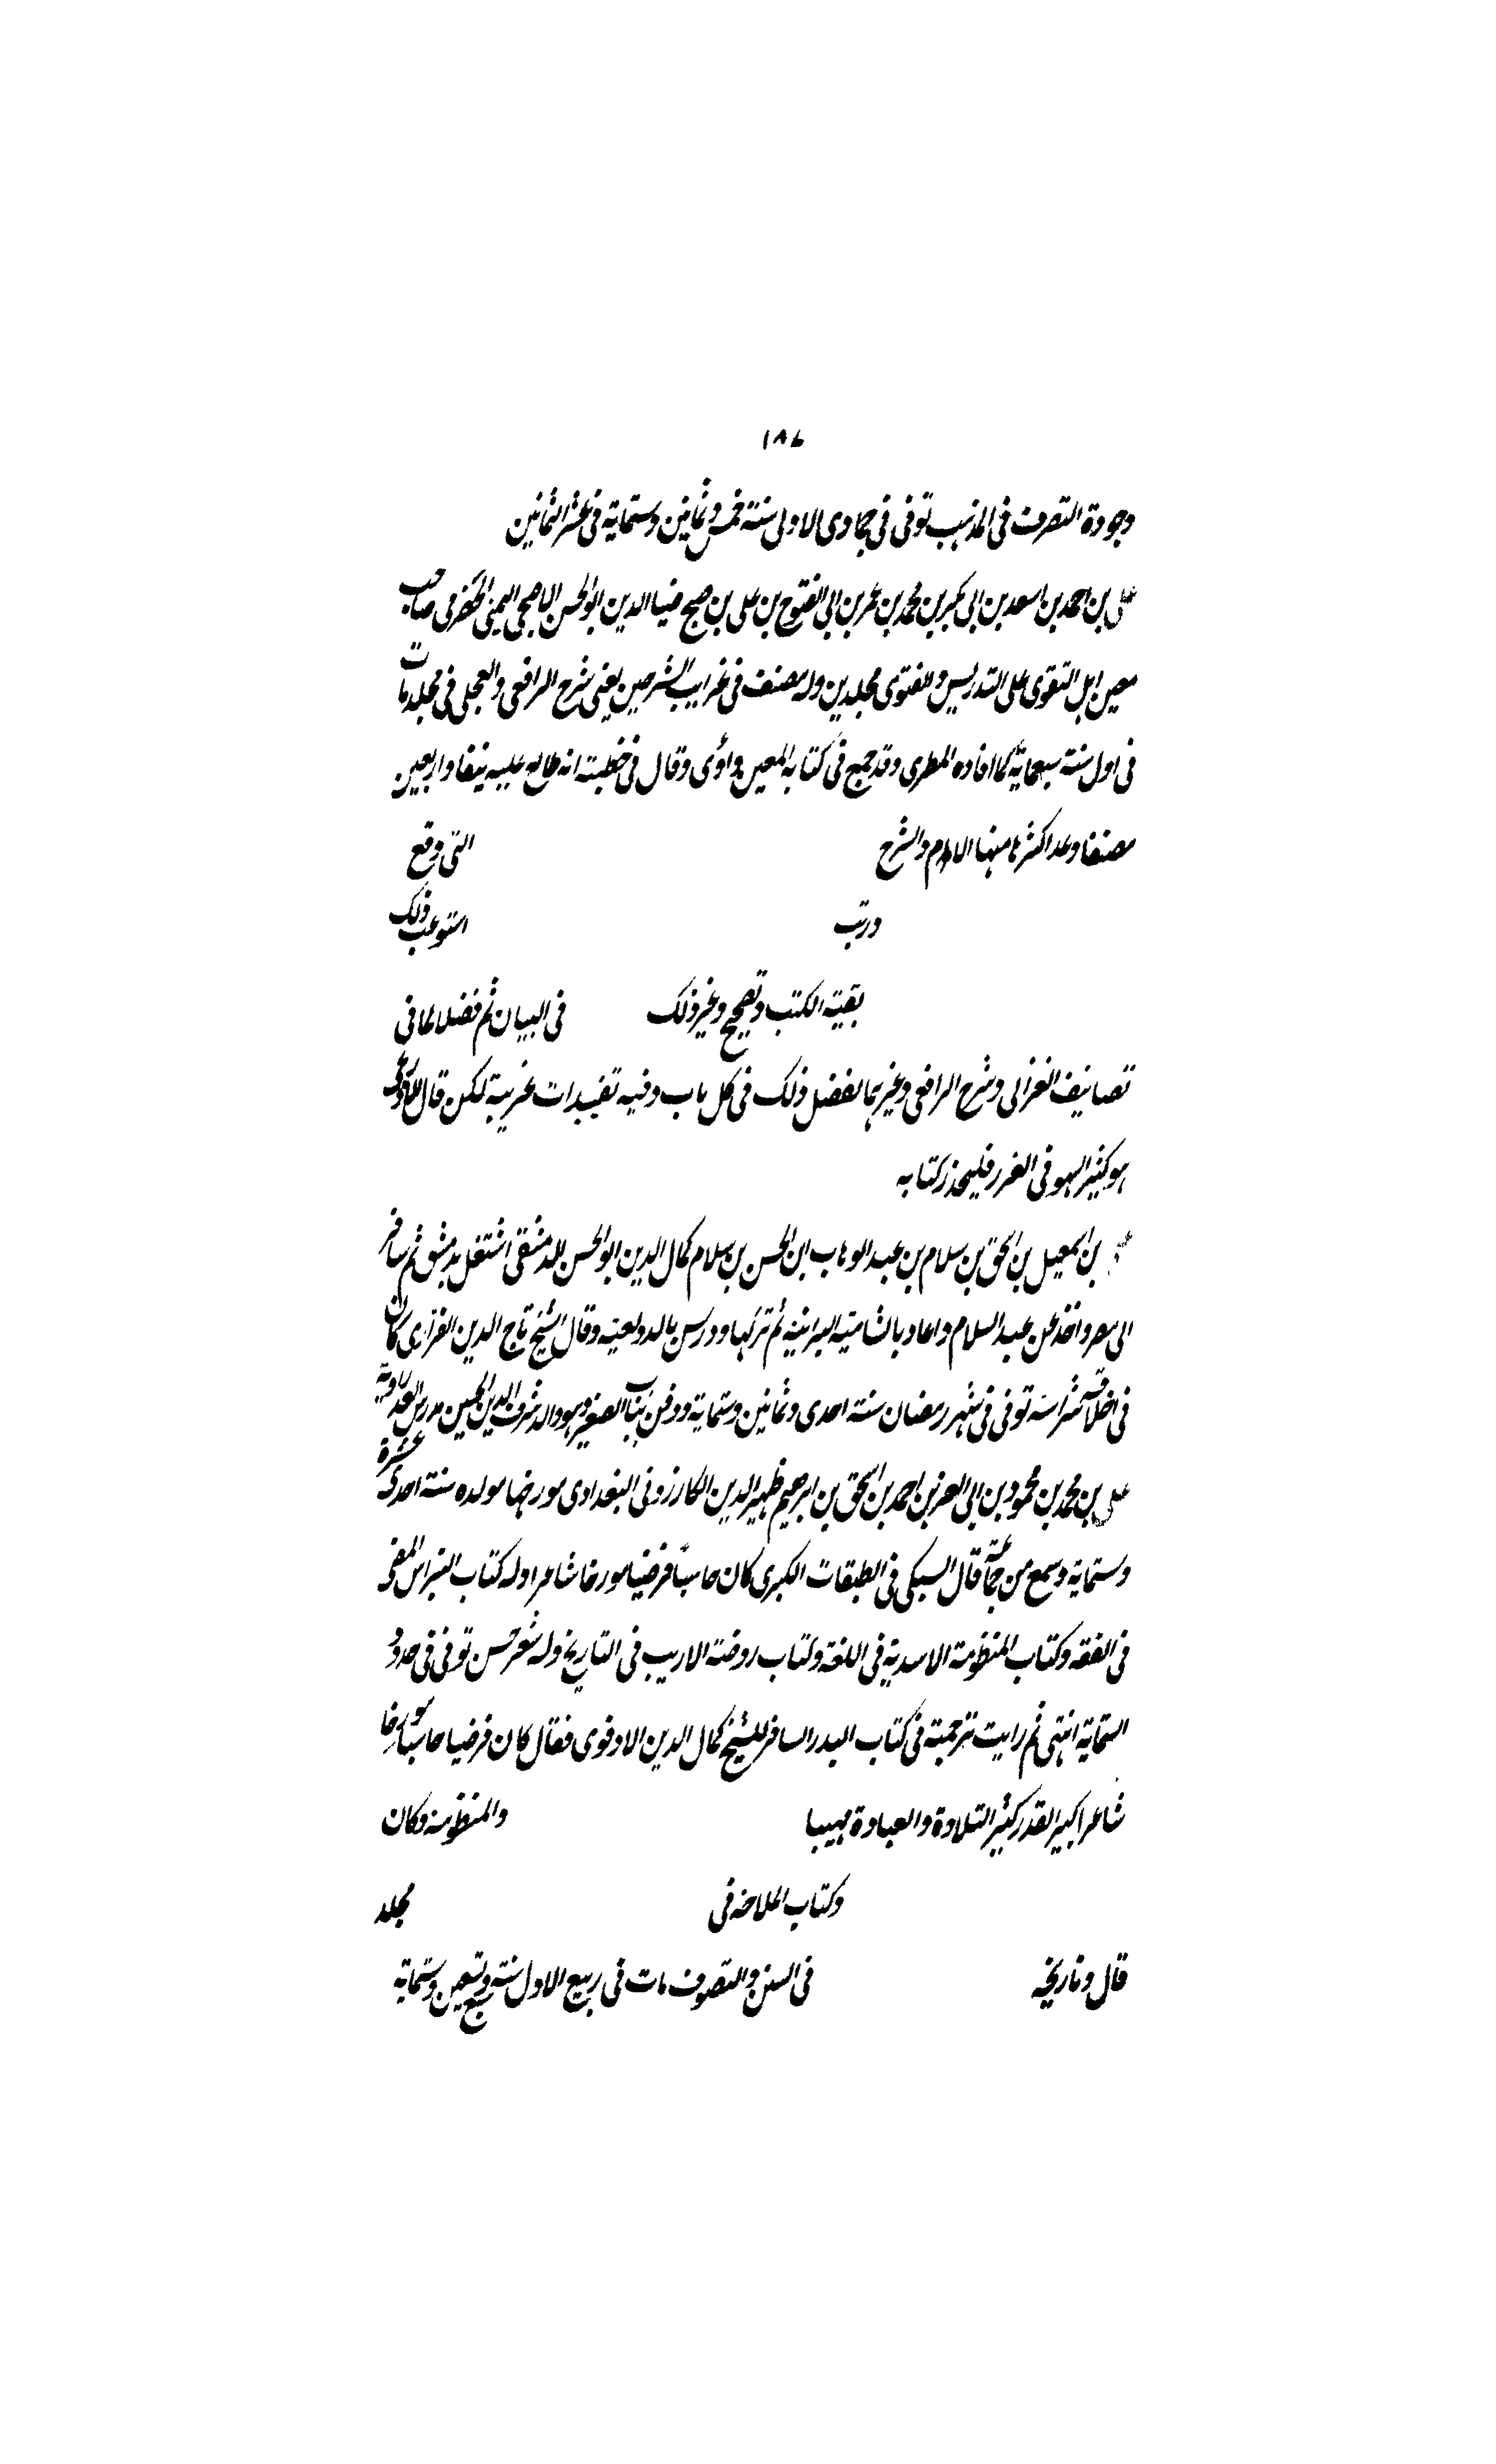 ١٨٦
وجودة التصرف في المذهب توفي في جمادى الاولى سنة خمس وثمانين وستماية في عشر الثمانين
على بن احمد بن اسعد بن ابى بكر بن محمد بن عمر بن ابى الفتوح بن على بن صبح ضيا الدين ابو الحسن الاصبحى اليمنى صاحب
معين اهل التقوى على التدريس والفتوى مجلدين وله مصنف في غرايب الشرحين يعنى شرح الرافعى والعجلى في مجلد مات
في اول سنة سبعماية كما افاده المطرى وقد جمع في كتابه المعين فاوى وقال في خطبته انه طالع عليه نيفا واربعين
مصنفا وعد اكثرها منها الامام والشرح التى وقع
ورتب استوعب ذلك
بقية الكتب وتصحيح وغير ذلك في البيان ثم فضلا عما في
تصانيف الغزالى وشرح الرافعى وغيرهما لفضل ذلك في كل باب وفيه تقييدات غريبة لكن قال
هو كثير السهو في الغرر فليحذر كتابه
بن اسمعيل بن اسحق بن سلام بن عبد الوهاب ابن الحسن بن سلام كمال الدين ابو الحسن الدمشقى اشتغل بدمشق ثم سافر
الى مصر واخذ عن عبد السلام واعاد بالشامية البرانية ثم تركها ودرس بالدولعية وقال الشيخ تاج الدين الفزارى كان
في اخلاقه شراسة توفي في شهر رمضان سنة احدى وثمانين وستماية ودفن بباب الصغير وهو والد شرف الدين الحسين مدرس العذراوية
على بن محمد بن محمود بن ابى العز بن احمد بن اسحق بن ابراهيم ظهير الدين الكازرونى البغدادى مورخها مولده سنة احدى عشرة
وستماية وسمع من جماعة قال السبكى في الطبقات الكبرى كان حاسبا فرضيا مورخا شاعرا وله كتاب النبراس المضى
في الفقه وكتاب المنظومة الاسدية في اللغة وكتاب روضة الاريب في التاريخ وله شعر حسن توفي في حدود
الستماية انتهى ثم رايت ترجمته في كتاب البدر السافر للشيخ كمال الدين الادفوى فقال كان فرضيا حاسبا مورخا
شاعرا كبير القدر كثير التلاوة والعبادة مهيبا والمنظومة وكان
وكتاب الملاحة في مجلد
قال وتاريخه في السنن والتصوف مات في ربيع الاول سنة سبع وتسعين وستماية